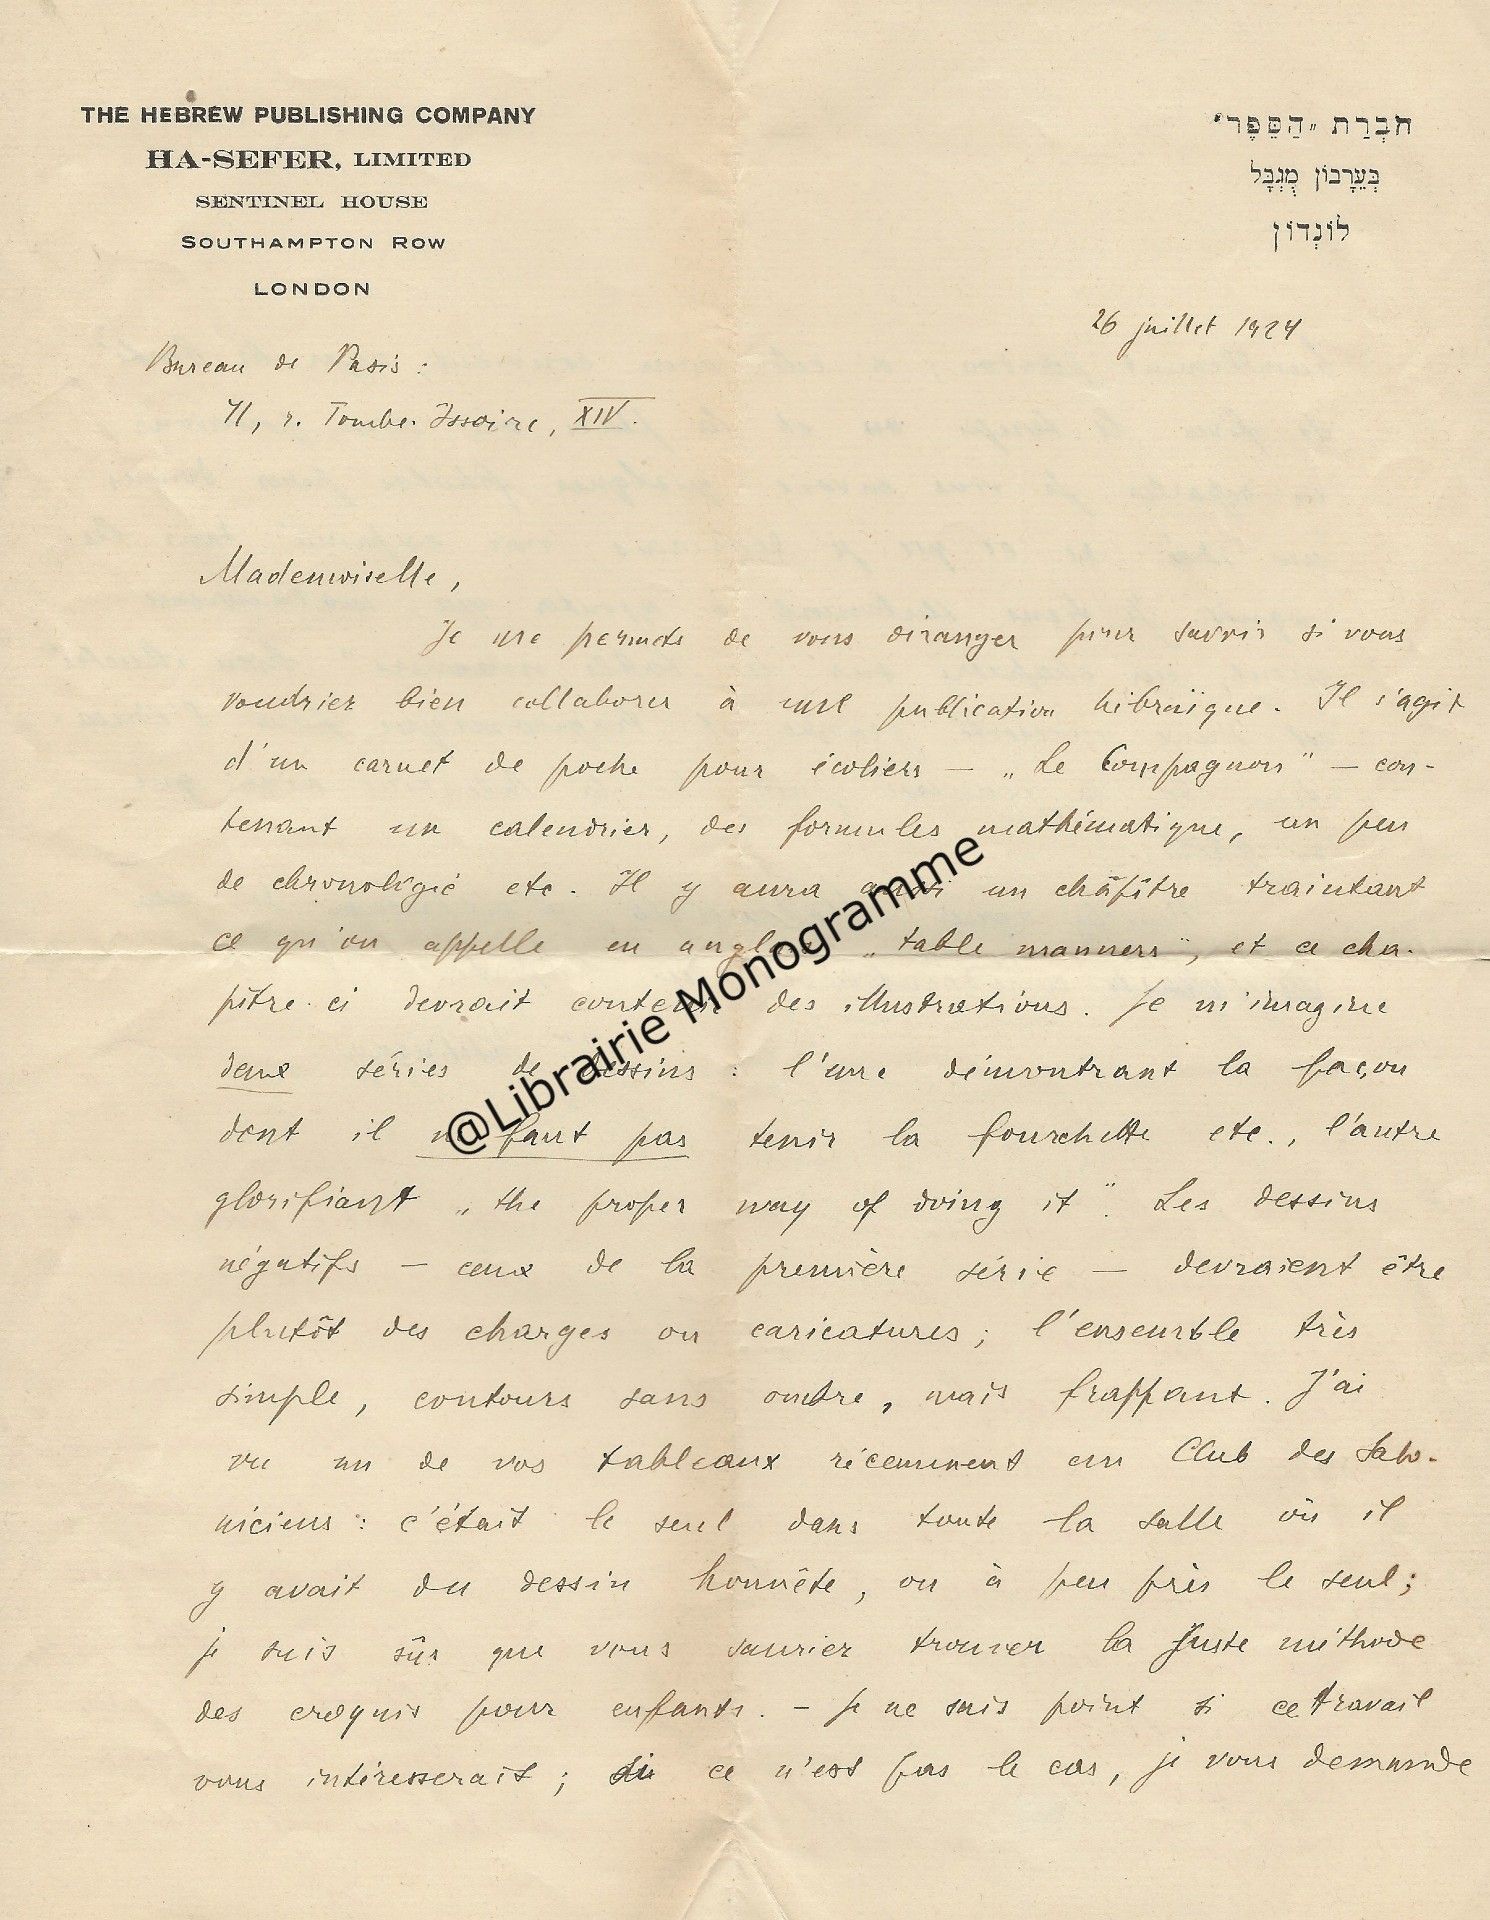 THE HEBREW PUBLISHING COMPANY
HA-SEFER, LIMITED
SENTINEL HOUSE
SOUTHAMPTON ROW
LONDON
חֶבְרַת „הַסֵּפֶר"
בְּעֵרָבוֹן מֻגְבָּל
לוֹנְדוֹן
26 juillet 1924
Bureau de Paris :
71, r. Tombe-Issoire, XIV.
Mademoiselle,
Je me permets de vous déranger pour savoir si vous
voudriez bien collaborer à une publication hébraïque. Il s'agit
d'un carnet de poche pour écoliers — „Le Compagnon" — con-
tenant un calendrier, des formules mathématique, un peu
de chronologie etc. Il y aura aussi un châpître traintant
ce qu'on appelle en anglais „table manners", et ce cha-
pître-ci devrait contenir des illustrations. Je m'imagine
deux séries de dessins : l'une démontrant la façon
dont il ne faut pas tenir la fourchette etc., l'autre
glorifiant „the proper way of doing it". Les dessins
négatifs — ceux de la première série — devraient être
plutôt des charges ou caricatures; l'ensemble très
simple, contours sans ombre, mais frappant. J'ai
vu un de vos tableaux récemment au Club des Salo-
niciens : c'était le seul dans toute la salle où il
y avait du dessin honnête, ou à peu près le seul;
je suis sûr que vous sauriez trouver la juste méthode
des croquis pour enfants. – Je ne sais point si ce travail
vous intéresserait ; si ce n'est pas le cas, je vous demande
@Librairie Monogramme